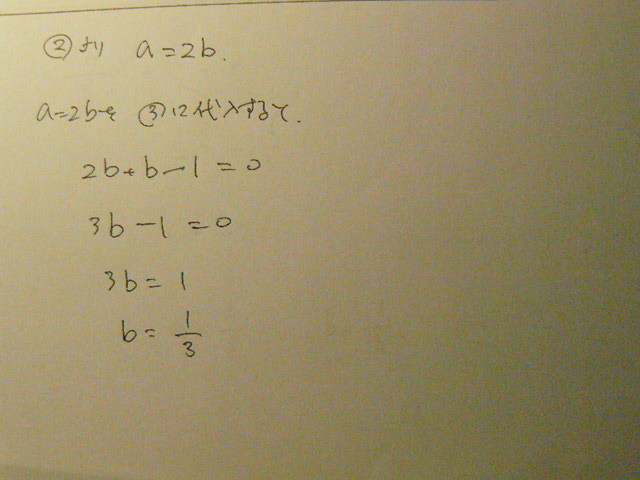 ②より a=2b.
a=2bを ③に代入すると.
2b+b-1=0
3b-1=0
3b=1
b=1/3